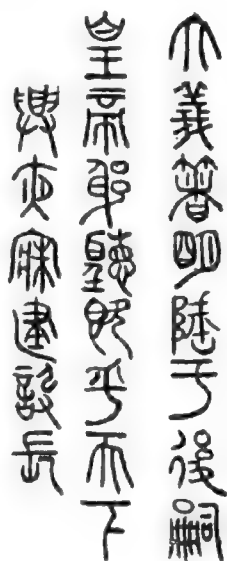 大義箸明陲于後嗣
皇帝躬聽既平天下
興夜寐建設長